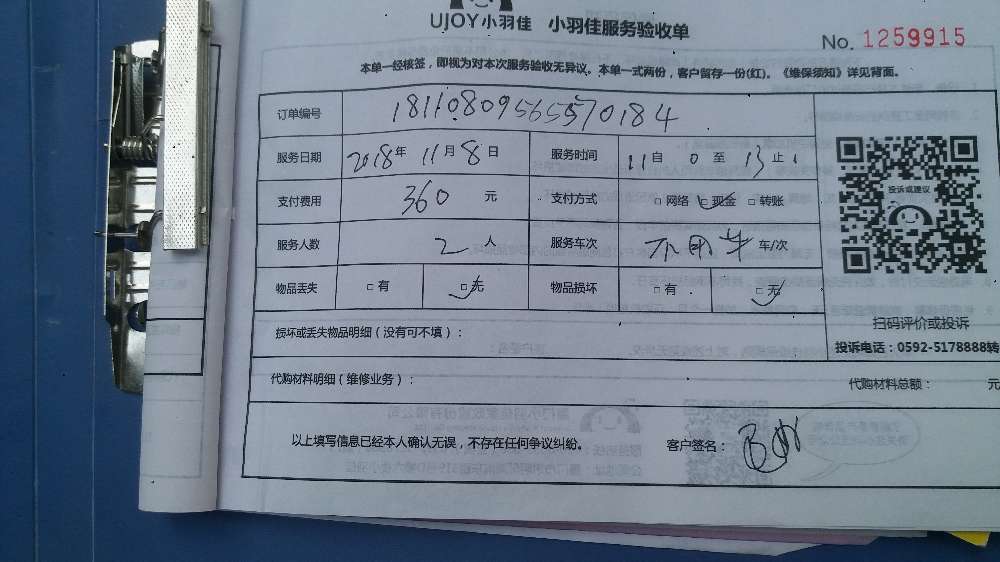 UJOY小羽佳 小羽佳服务验收单
No. 1259915
本单一经核签，即视为对本次服务验收无异议。本单一式两份，客户留存一份(红)。《维保须知》详见背面。
订单编号 18110809565570184
服务日期 2018年 11月 8日 服务时间 11自 0至 13止
支付费用 360 元 支付方式 □网络 □现金 □转账
投诉或建议
服务人数 2人 服务车次 不用车 车/次
物品丢失 □有 □无 物品损坏 □有 □无
扫码评价或投诉
损坏或丢失物品明细（没有可不填）：
投诉电话：0592-5178888转
代购材料明细（维修业务）： 代购材料总额： 元
以上填写信息已经本人确认无误，不存在任何争议纠纷。 客户签名：